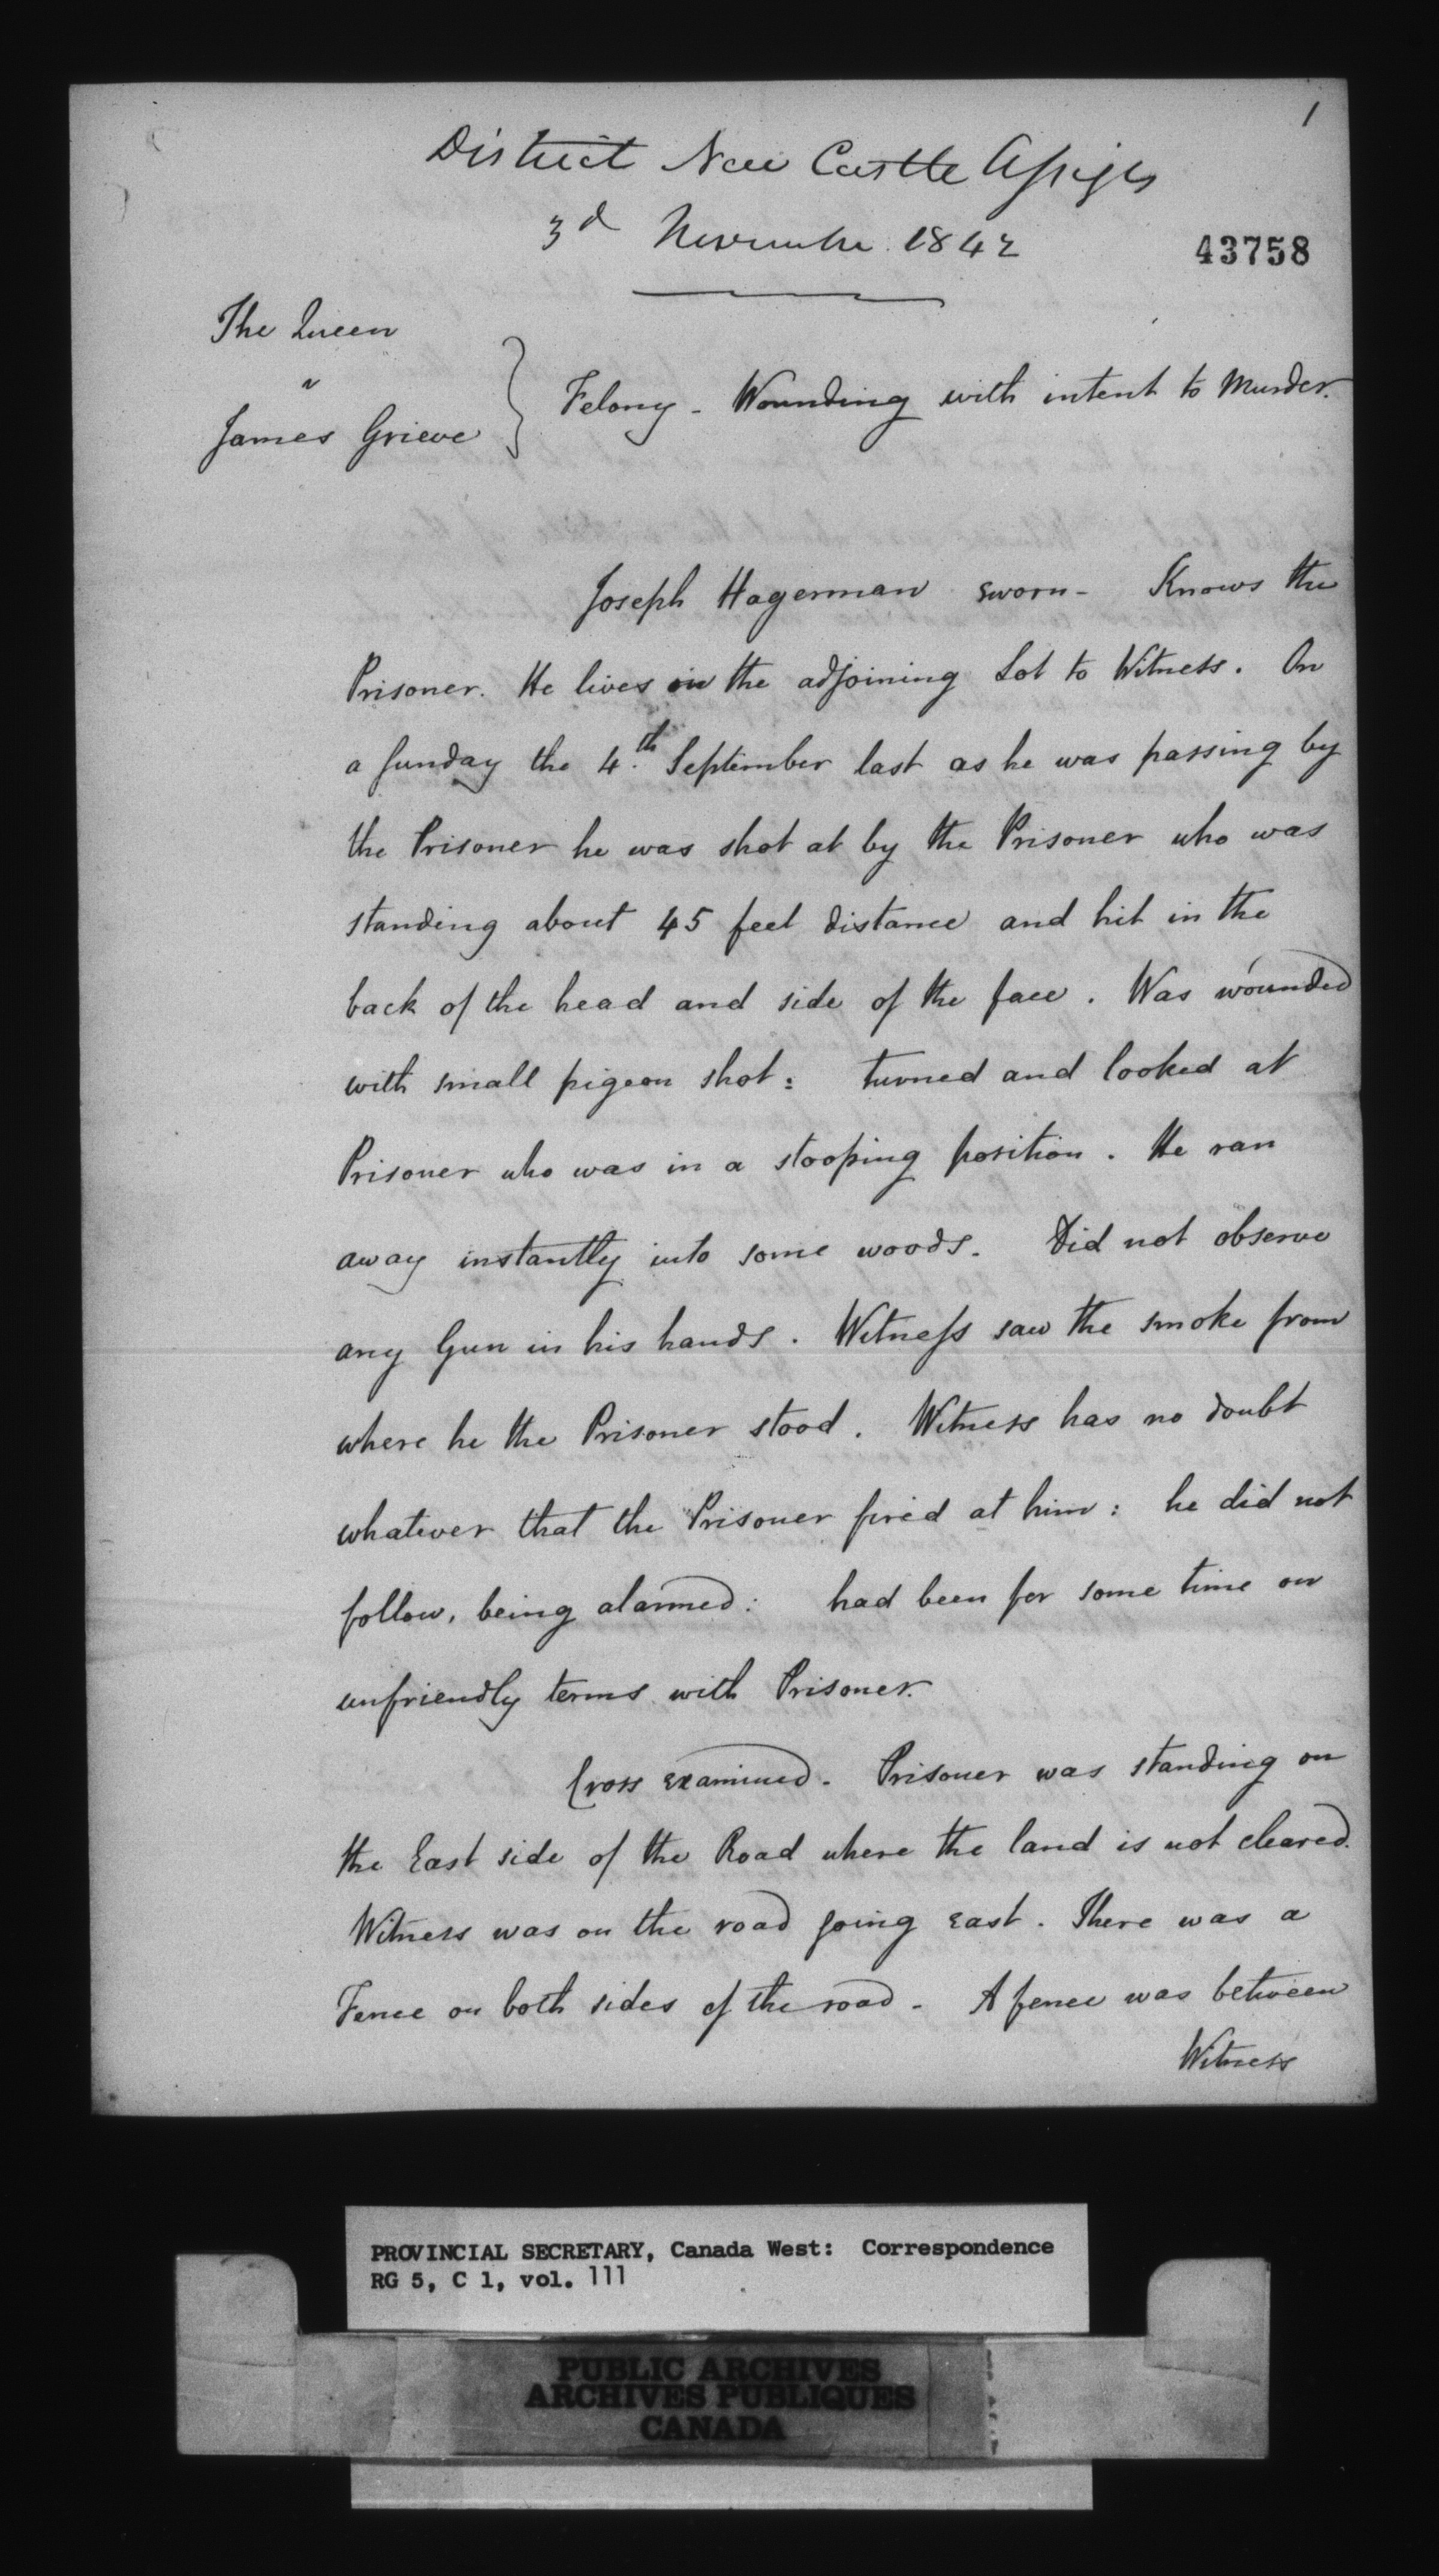 1
District New Castle Assizes
3d November 1842
43758
The Queen
v
James Grieve
Felony - Wounding with intent to Murder.
Joseph Hagerman sworn - Knows the
Prisoner. He lives on the adjoining Lot to Witness. On
a Sunday the 4th September last as he was passing by
the Prisoner he was shot at by the Prisoner who was
standing about 45 feet distance and hit in the
back of the head and side of the face. Was wounded
with small pigeon shot: turned and looked at
Prisoner who was in a stooping position. He ran
away instantly into some woods. Did not observe
any Gun in his hands. Witness saw the smoke from
where he the Prisoner stood. Witness has no doubt
whatever that the Prisoner fired at him: he did not
follow, being alarmed: had been for some time on
unfriendly terms with Prisoner.
Cross examined. Prisoner was standing on
the East side of the Road where the land is not cleared.
Witness was on the road going East. There was a
Fence on both sides of the road - A fence was between
Witness
PROVINCIAL SECRETARY, Canada West: Correspondence
RG 5, C 1, vol. 111
PUBLIC ARCHIVES
ARCHIVES PUBLIQUES
CANADA